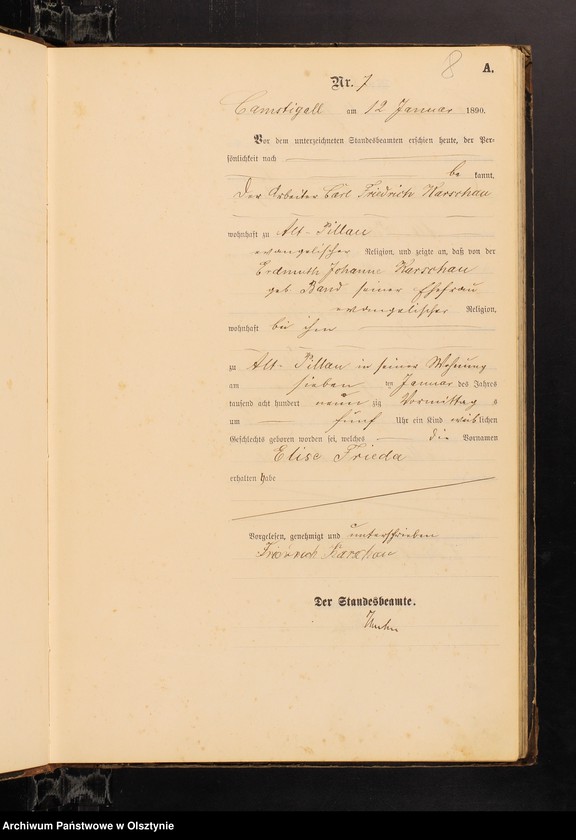 8 A.
Nr. 7
Camstigall am 12 Januar 1890.
Vor dem unterzeichneten Standesbeamten erschien heute, der Per-
sönlichkeit nach
be kannt,
Der Arbeiter Carl Friedrich Karschau
wohnhaft zu Alt-Pillau
evangelischer Religion, und zeigte an, daß von der
Erdmuth Johanne Karschau
geb Band seiner Ehefrau
evangelischer Religion,
wohnhaft bei ihm
zu Alt-Pillau in seiner Wohnung
am sieben ten Januar des Jahres
tausend acht hundert neun zig Vormittag s
um fünf Uhr ein Kind weiblichen
Geschlechts geboren worden sei, welches die Vornamen
Elise Frieda
erhalten habe
Vorgelesen, genehmigt und unterschrieben
Friedrich Karschau
Der Standesbeamte.
Archiwum Państwowe w Olsztynie